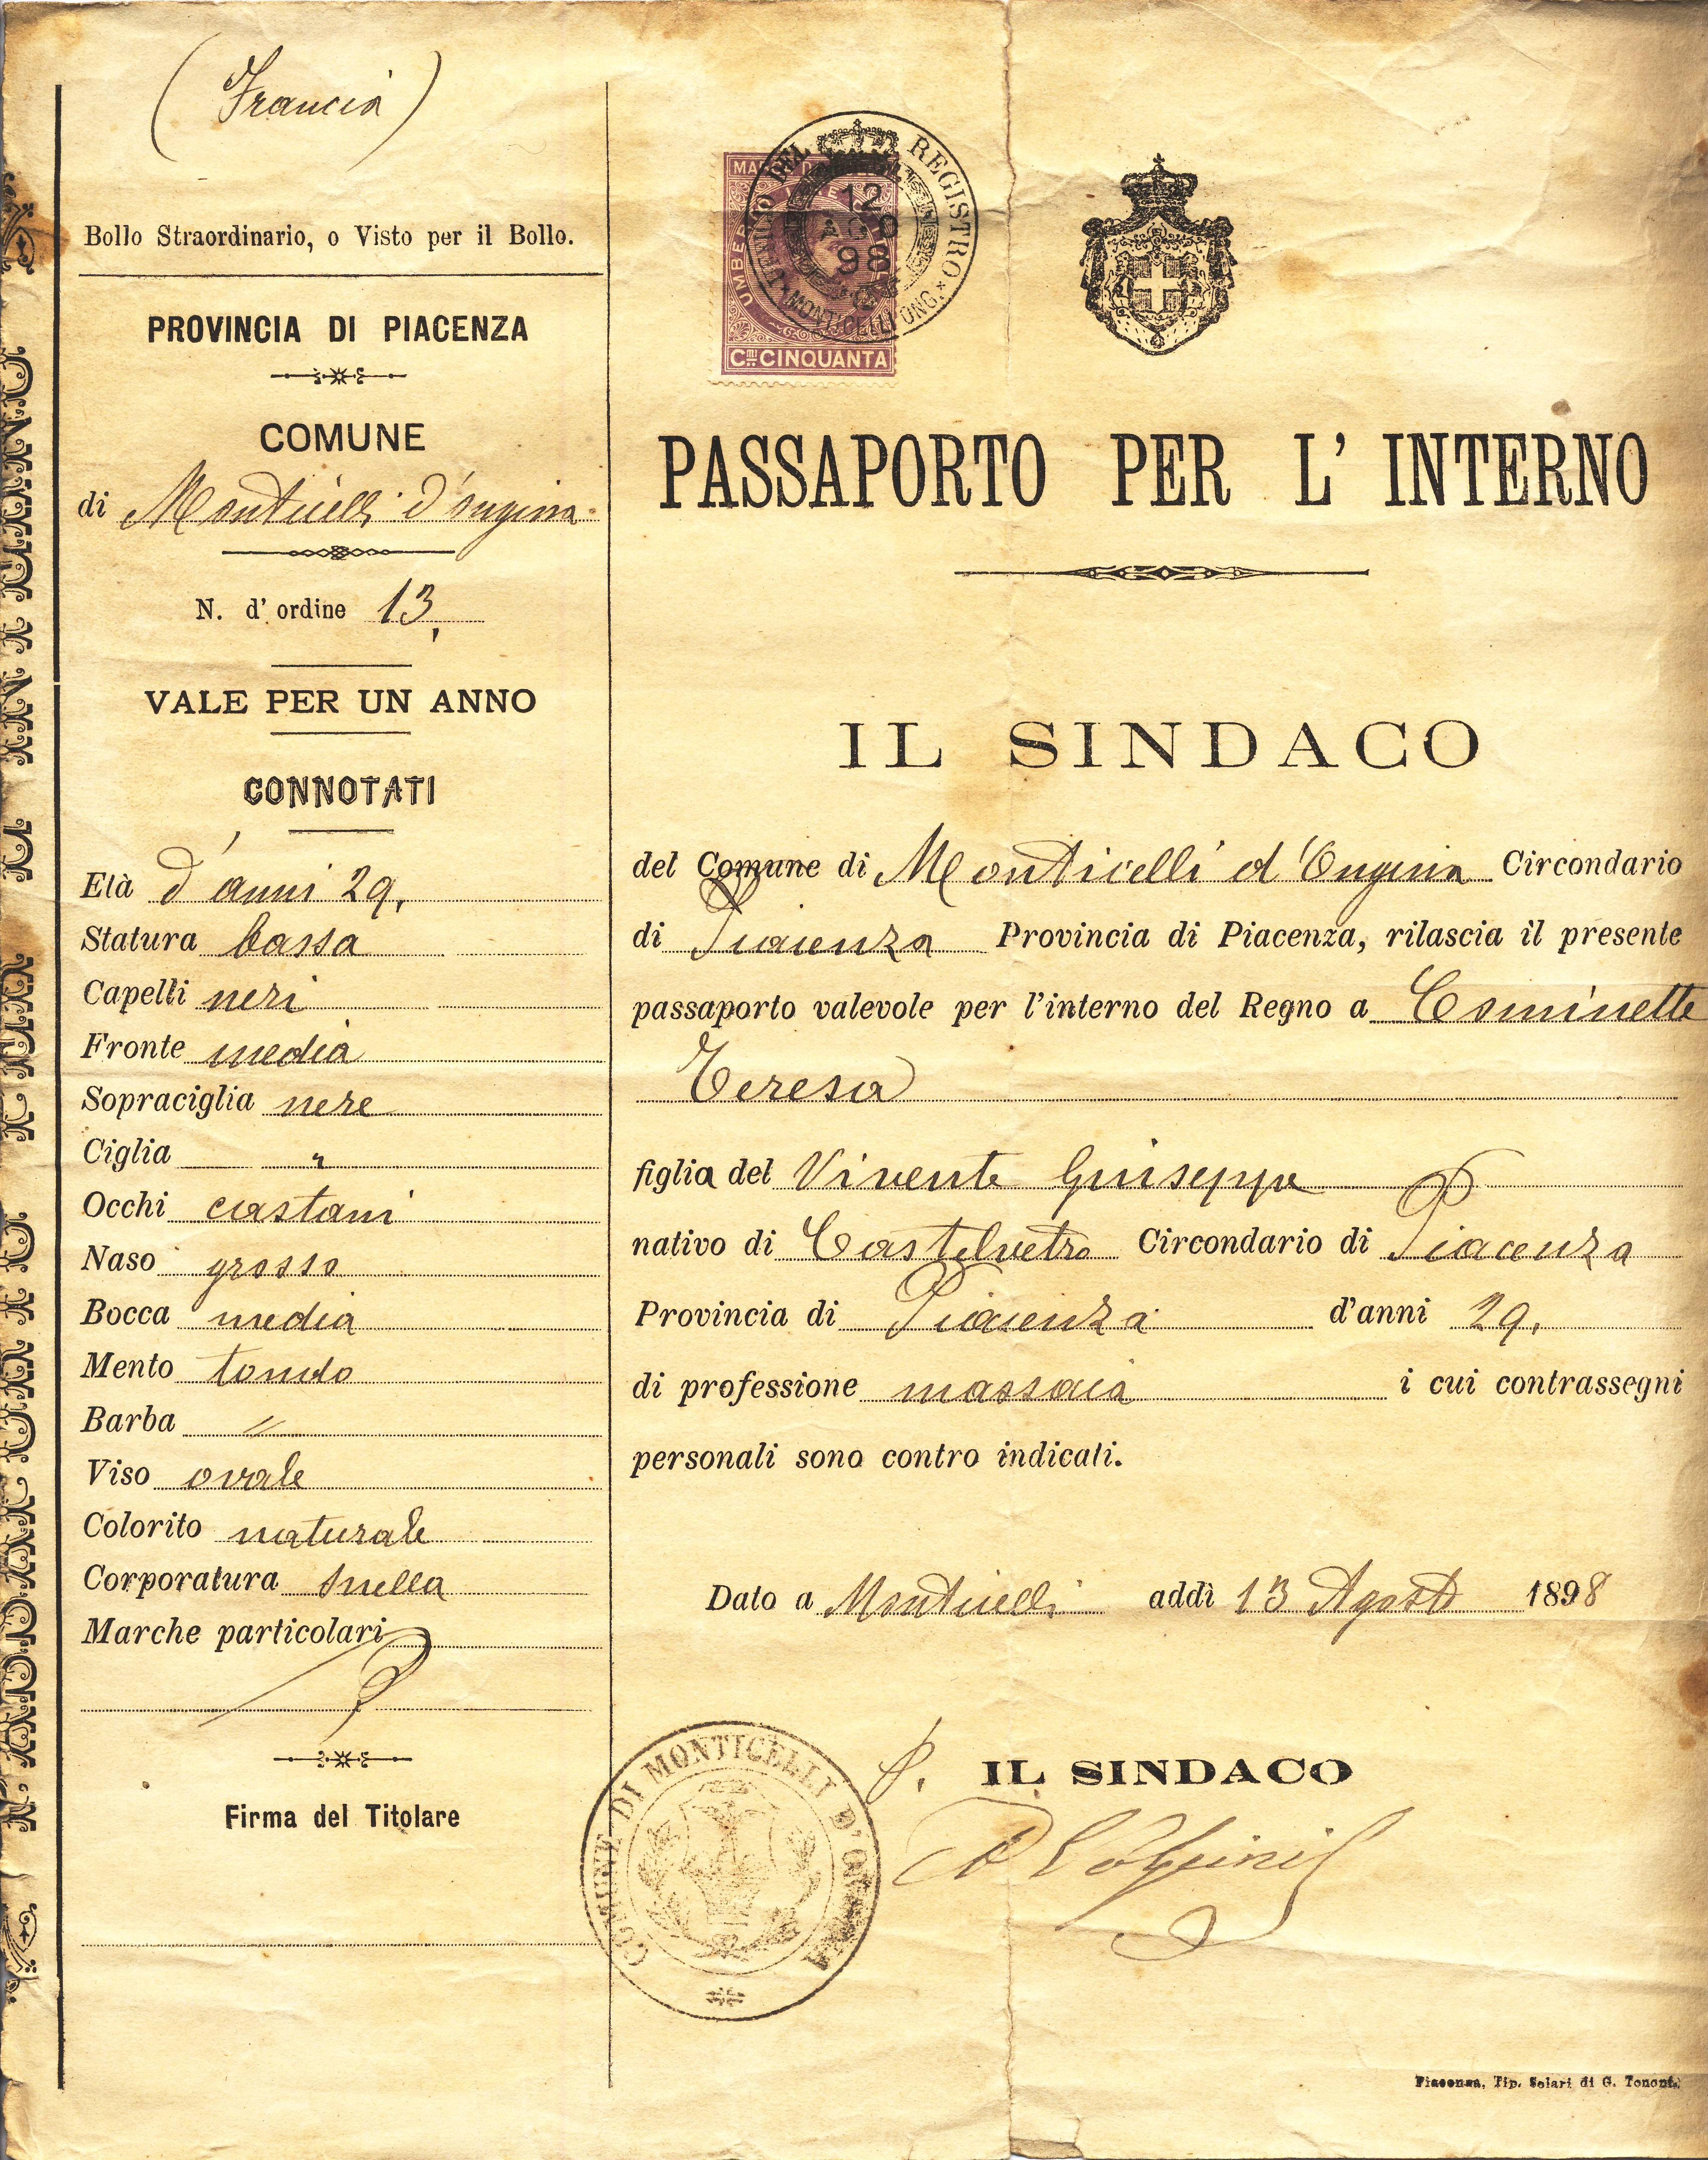 (Francia)
Bollo Straordinario, o Visto per il Bollo.
PROVINCIA DI PIACENZA
COMUNE
di Monticelli d'ongina
N. d'ordine 13,
VALE PER UN ANNO
CONNOTATI
Età d'anni 29,
Statura bassa
Capelli neri
Fronte media
Sopraciglia nere
Ciglia "
Occhi castani
Naso grosso
Bocca media
Mento tondo
Barba "
Viso ovale
Colorito naturale
Corporatura snella
Marche particolari
Firma del Titolare
MARCA DA
UMBERTO
Cmi CINQUANTA
UFFICIO DEL REGISTRO
12
AGO
98
MONTICELLI D'ONG.
PASSAPORTO PER L' INTERNO
IL SINDACO
del Comune di Monticelli d'Ongina Circondario
di Piacenza Provincia di Piacenza, rilascia il presente
passaporto valevole per l'interno del Regno a Cominette
Teresa
figlia del Vivente Giuseppe
nativo di Castelvetro Circondario di Piacenza
Provincia di Piacenza d'anni 29,
di professione massaia i cui contrassegni
personali sono contro indicati.
Dato a Monticelli addì 13 Agosto 1898
P. IL SINDACO
COMUNE DI MONTICELLI D'ONGINA
Piacenza, Tip. Solari di G. Tononi